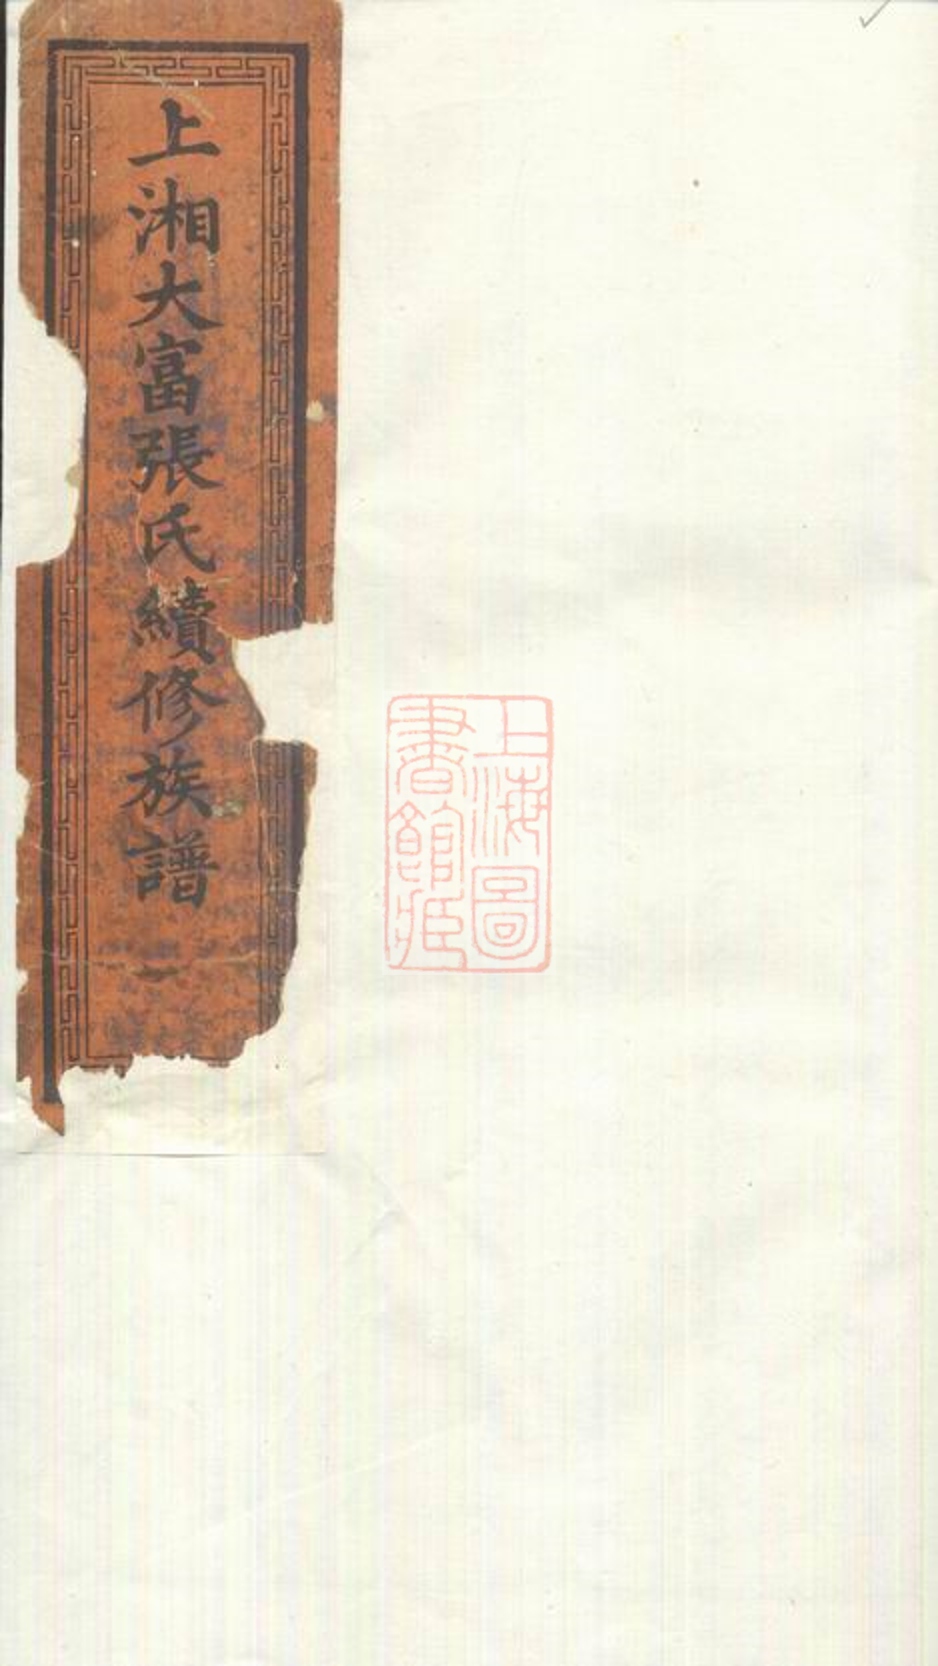 上湘大富張氏續修族譜
一
上海圖
書館藏